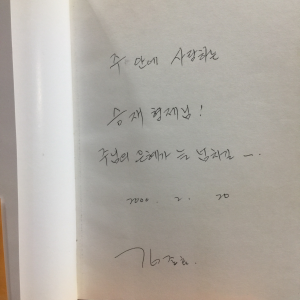 주 안에 사랑하는
승재 형제님!
주님의 은혜가 늘 넘치길 —.
2000. 2. 20